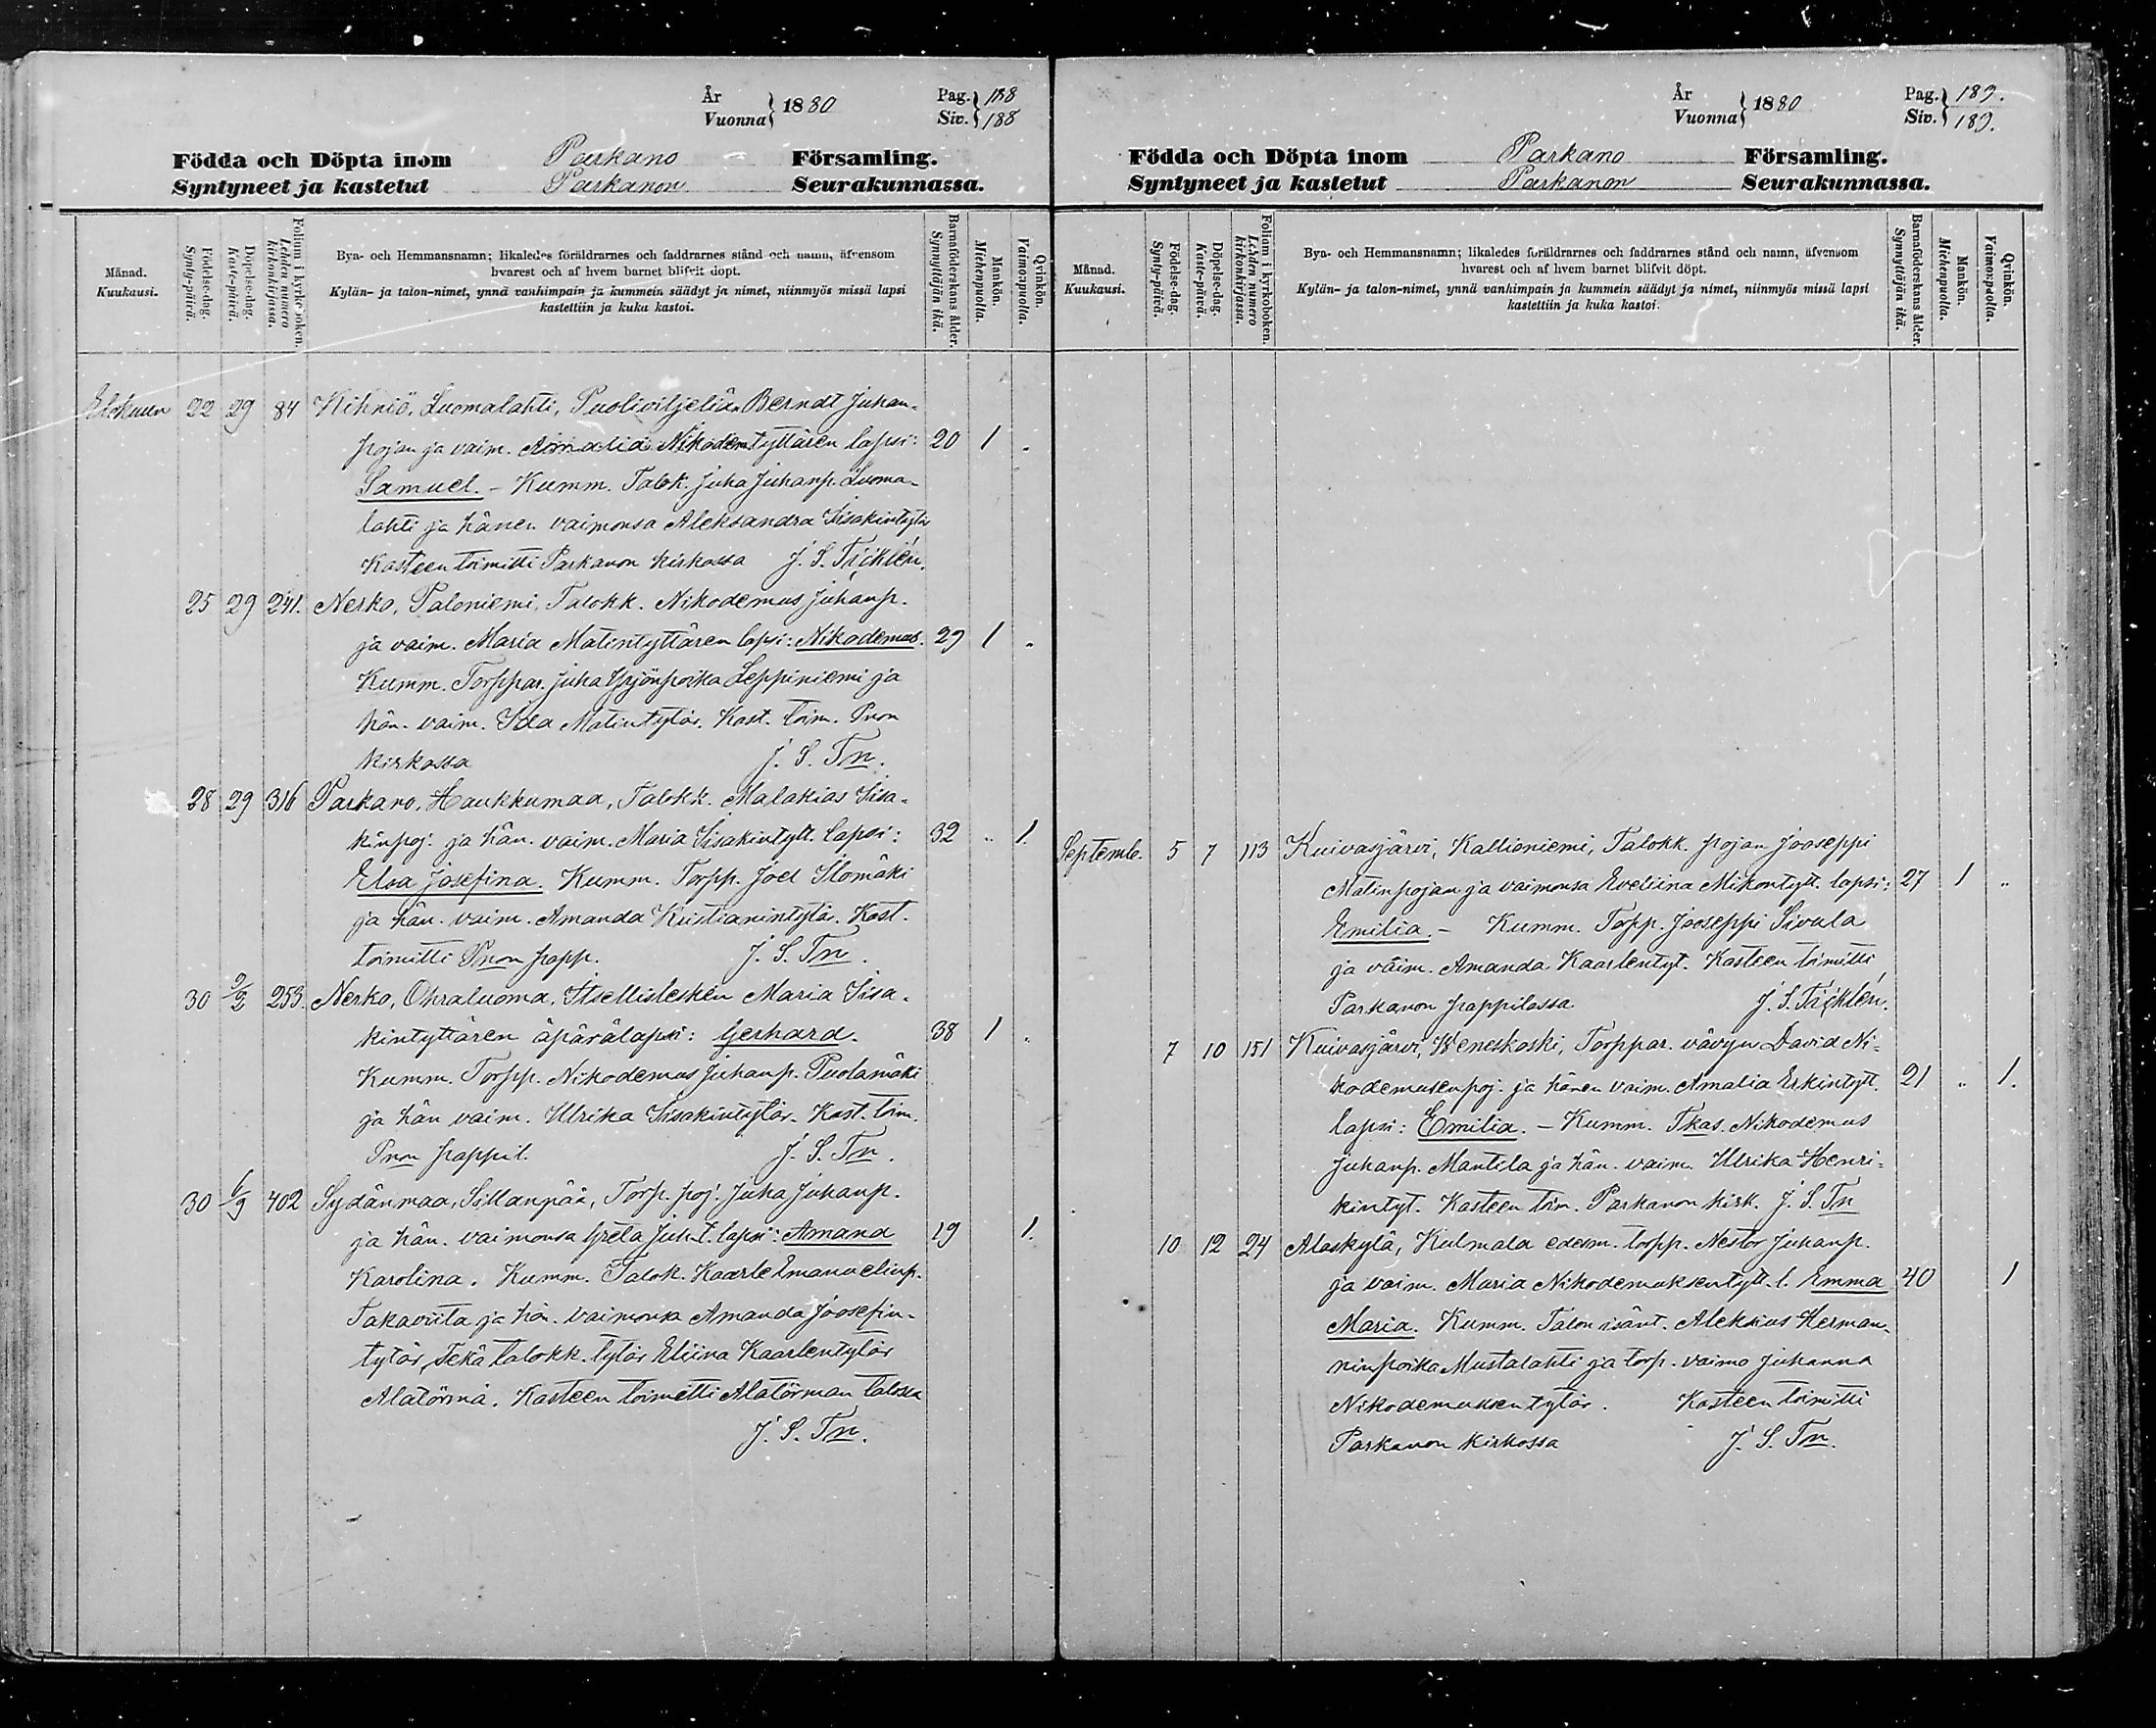 År
Vuonna } 1880
Pag. } 188
Siv. } 188
Födda och Döpta inom Parkano Församling.
Syntyneet ja kastetut Parkanon Seurakunnassa.
Månad.
Kuukausi.
Födelse-dag.
Synty-päivä.
Döpelse-dag.
Kaste-päivä.
Folium i kyrkoboken.
Lehden numero
kirkonkirjassa.
Bya- och Hemmansnamn; likaledes föräldrarnes och faddrarnes stånd och namn, äfvensom
hvarest och af hvem barnet blifvit döpt.
Kylän- ja talon-nimet, ynnä vanhimpain ja kummein säädyt ja nimet, niinmyös missä lapsi
kastettiin ja kuka kastoi.
Barnaföderskans ålder.
Synnyttäjän ikä.
Mankön.
Miehenpuolla.
Qvinkön.
Vaimonpuolla.
Elokuun 22 29 84 Kihniö, Luomalahti, Puoliviljeliän Berndt Juhan-
pojan ja vaim. Amalia Nikodemtyttären lapsi: 20 1 "
Samuel. - Kumm. Talok. Juha Juhanp. Luoma-
lahti ja hänen vaimonsa Aleksandra Iisakintytär
Kasteen toimitti Parkanon kirkossa J. S. Ticklén.
25 29 241. Nerko, Paloniemi, Talokk. Nikodemus Juhanp.
ja vaim. Maria Matintyttären lapsi: Nikodemus. 29 1 "
Kumm. Torppar. Juha Yrjönpoika Leppiniemi ja
hän. vaim. Ida Matintytär. Kast. toim. Pnon
kirkossa J. S. Tn.
28 29 316 Parkano, Haukkumaa, Talokk. Malakias Iisa-
kinpoj. ja hän. vaim. Maria Iisakintytt. lapsi: 32 " 1.
Elsa Josefina. Kumm. Torpp. Joel Ilomäki
ja hän. vaim. Amanda Kristianintytär. Kast.
toimitti Pnon papp. J. S. Tn.
30 2/9 253. Nerko, Ohraluoma, Itsellislesken Maria Iisa-
kintyttären äpärälapsi: Gerhard. 38 1 "
Kumm. Torpp. Nikodemus Juhanp. Puolamäki
ja hän vaim. Ulrika Iisakintytär. Kast. toim.
Pnon pappil. J. S. Tn.
30 6/9 402 Sydänmaa, Sillanpää, Torp. poj. Juha Juhanp.
ja hän. vaimonsa Greta Juh.t. lapsi: Amanda 19 1.
Karolina. Kumm. Talok. Kaarle Emanuelinp.
Takaviita ja hän. vaimonsa Amanda Joosefin-
tytär, Sekä talokk. tytär Eliina Kaarlentytär
Alatörmä. Kasteen toimitti Alatörmän talossa
J. S. Tn.
År
Vuonna } 1880
Pag. } 189.
Siv. } 189.
Födda och Döpta inom Parkano Församling.
Syntyneet ja kastetut Parkanon Seurakunnassa.
Månad.
Kuukausi.
Födelse-dag.
Synty-päivä.
Döpelse-dag.
Kaste-päivä.
Folium i kyrkoboken.
Lehden numero
kirkonkirjassa.
Bya- och Hemmansnamn; likaledes föräldrarnes och faddrarnes stånd och namn, äfvensom
hvarest och af hvem barnet blifvit döpt.
Kylän- ja talon-nimet, ynnä vanhimpain ja kummein säädyt ja nimet, niinmyös missä lapsi
kastettiin ja kuka kastoi.
Barnaföderskans ålder.
Synnyttäjän ikä.
Mankön.
Miehenpuolla.
Qvinkön.
Vaimonpuolla.
Septemb. 5 7 113 Kuivasjärvi, Kallioniemi, Talokk. pojan Jooseppi
Matinpojan ja vaimonsa Eveliina Mikontytt. lapsi: 27 1 "
Emilia. - Kumm. Topp. Jooseppi Sivula
ja vaim. Amanda Kaarlentyt. Kasteen toimitti
Parkanon pappilassa J. S. Ticklén.
7 10 151 Kuivasjärvi, Weneskoski, Torppar. vävyn David Ni-
kodemusenpoj. ja hänen vaim. Amalia Erkintytt. 21 " 1.
lapsi: Emilia. - Kumm. Tkas. Nikodemus
Juhanp. Mantila ja hän. vaim. Ulrika Henri-
kintyt. Kasteen toim. Parkanon kirk. J. S. Tn
10 12 24 Alaskylä, Kulmala edesm. torpp. Nestor Juhanp.
ja vaim. Maria Nikodemuksentytt. l. Emma 40 1
Maria. Kumm. Talon isänt. Aleksius Herman-
ninpoika Mustalahti ja torp. vaimo Juhanna
Nikodemuksentytär. Kasteen toimitti
Parkanon kirkossa J. S. Tn.